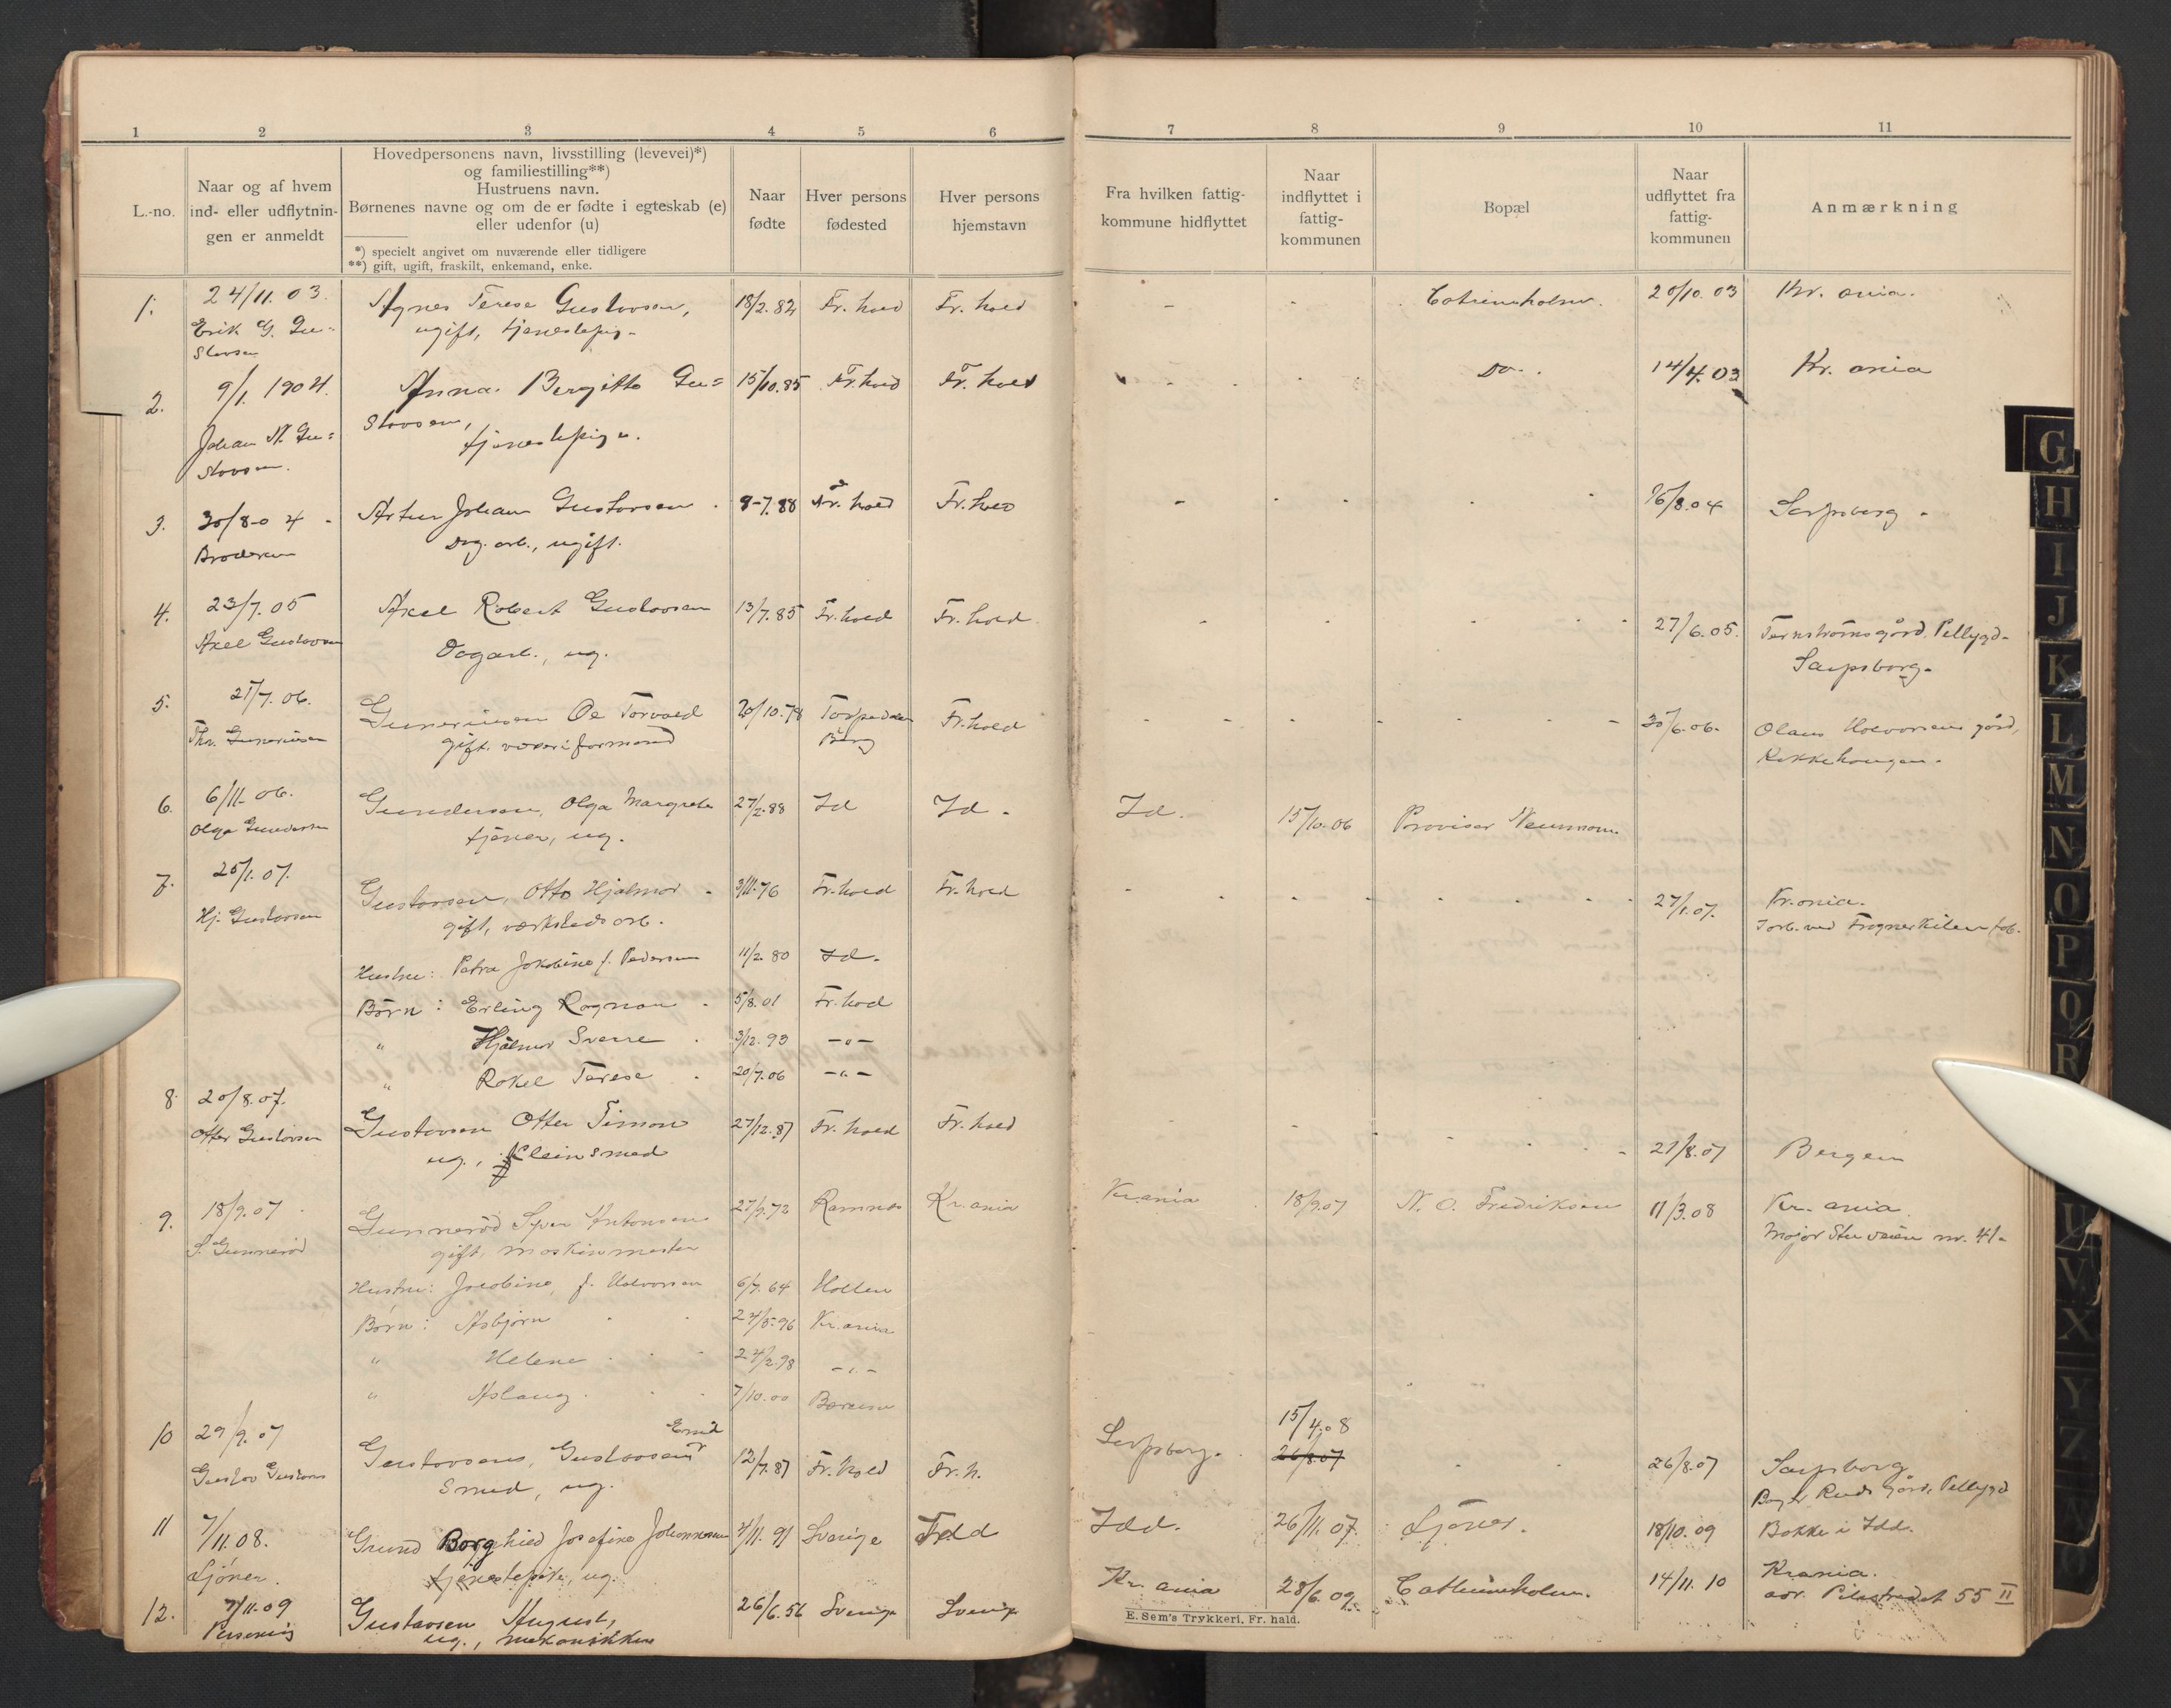 1 2 3 4 5 6
L.-no.
Naar og af hvem
ind- eller udflytnin-
gen er anmeldt
Hovedpersonens navn, livsstilling (levevei)*)
og familiestilling**)
Hustruens navn.
Børnenes navne og om de er fødte i egteskab (e)
eller udenfor (u)
*) specielt angivet om nuværende eller tidligere
**) gift, ugift, fraskilt, enkemand, enke.
Naar
fødte
Hver persons
fødested
Hver persons
hjemstavn
1. 24/11.03. Agnes Terese Gustavsen, 18/2.82 Fr.hald Fr.hald
Erik G. Gu=
stavsen
ugift, tjenestepig.
2. 9/1.1904. Anna Bergitte Gu= 15/10.85 Fr.hald Fr.hald
Johan A. Gu=
stavsen.
stavsen,
tjenestepige.
3. 30/8-04 - Artur Johan Gustavsen. 9-7.88 Fr.hald Fr.hald
Broderen
Dag.arb., ugift.
4. 23/7.05 Axel Robert Gustavsen 13/7.85 Fr.hald Fr.hald
Axel Gustavsen
Dagarb., ug.
5. 25/7.06. Guneriusen Oe Torvald 20/10.78 Fr.hald
Thv. Guneriusen
gift. væveriformand
Berg
6. 6/11-06. Gundersen, Olga Margrete 27/2.88 Id Id.
Olga Gundersen
tjener, ug.
7. 25/1.07. Gustavsen, Otto Hjalmar 3/11.76 Fr.hald Fr.hald
Hj. Gustavsen
gift, værkstedsarb.
Hustru: Petra Jokobine f. Pedersen 11/2.80 Id.
Børn: Erling Ragnar. 5/8.01 Fr.hald
" Hjalmar Sverre. 3/12.93 -"-
" Rakel Terese. 20/7.06 -"-
8. 20/8.07. Gustavsen Otter Simon 27/12.87 Fr.hald Fr.hald
Otter Gustavsen
ug., Kleinsmed
9. 18/9.07 Gunnerød Syver Antonsen 27/9.72 Ramnæs Kr.ania
S. Gunnerød
gift, maskinmester
Hustru: Jacobine, f. Halvorsen 6/7.64 Holten
Børn: Asbjørn 24/5.96 Kr.ania
" Helene 24/2.98 -"-
" Aslaug. 7/10.00 Bærum
Emil
10 29/9.07 Gustavsen, Gustavsen 12/7.87 Fr.hald Fr.h.
Gustav Gustavs
Smed, ug.
11 7/11.08. Grund Borghild Josefine Johannesen 4/11.91 Sverige Idd
Ljöner.
tjenestepike, ug.
12. 7/11.09 Gustavsen August, 26/6.56 Sverige Sverige
ug., mekanikker
7 8 9 10 11
Fra hvilken fattig-
kommune hidflyttet
Naar
indflyttet i
fattig-
kommunen
Bopæl
Naar
udflyttet fra
fattig-
kommunen
Anmærkning
- - Catrineholm. 20/10.03 Kr.ania.
- Do. 14/4.03 Kr.ania
- 16/8.04 Sarpsborg.
- 27/6.05. Ternströms gård, Pellygd-
Sarpsborg.
- 30/6.06. Olaus Halvorsens gård,
Rekkehaugen.
Id. 15/10.06 Provisor Neumann
- 27/1.07. Kr.ania.
arb. ved Frognerkilens fab.
21/8.07 Bergen
Kr.ania 18/9.07 N. O. Fredriksen 11/3.08 Kr.ania.
Major Stuveien nr. 41.
15/4.08
Sarpsborg. 26/8.07 26/8.07 Sarpsborg
Ruds gård, Pellygd
Idd. 26/11.07. Ljöner. 18/10.09 Bakke i Idd.
Kr.ania 28/6.09. Cathrineholm. 14/11.10 Krania.
adr. Pilestrædet 55 II
E. Sem's Trykkeri, Fr. hald.
G
H
I
J
K
L
M
N
O
P
Q
R
U
V
X
Y
Z